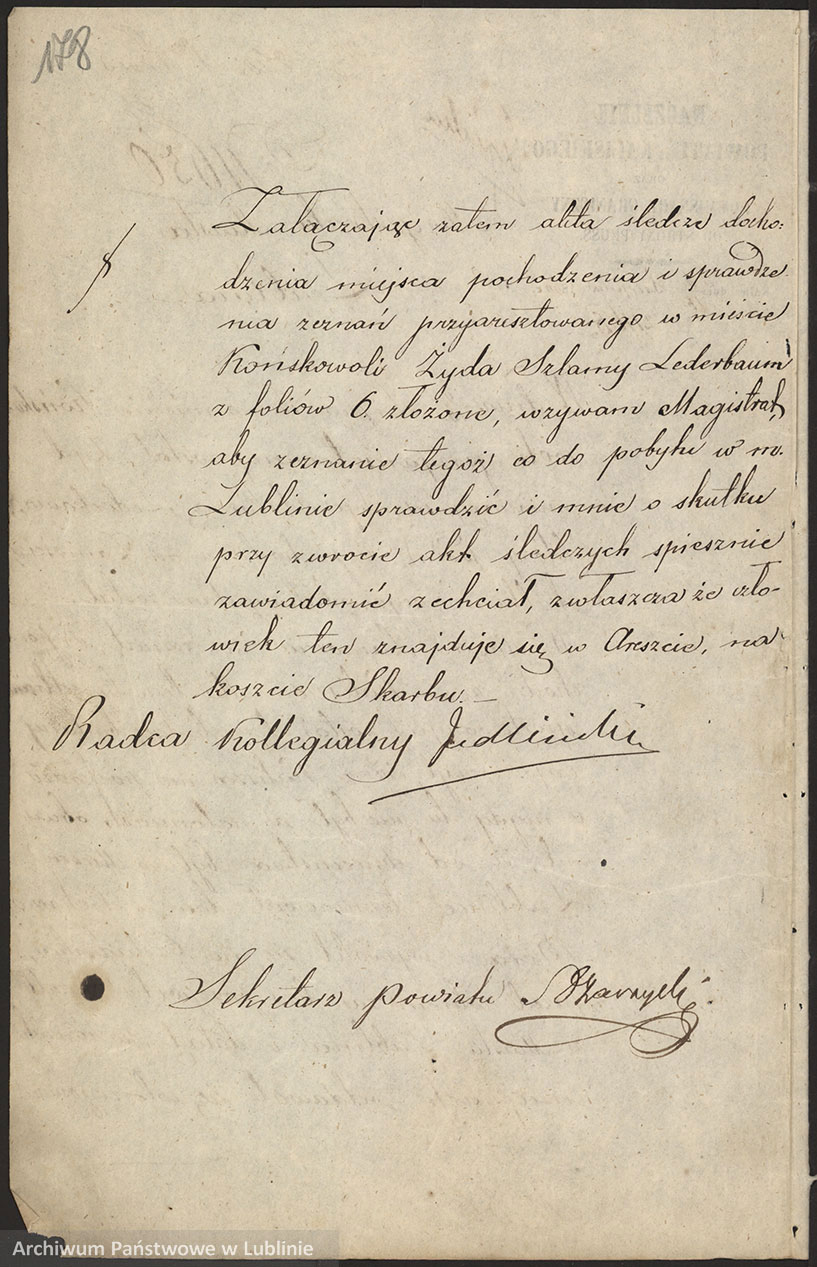 178
Załączając zatem akta śledcze docho:
dzenia miejsca pochodzenia i sprawdze
nia zeznań przyaresztowanego w mieście
Końskowoli Żyda Szlamy Lederbaum
z foliów 6. złożone, wzywam Magistrat,
aby zeznanie tegoż co do pobytu w m.
Lublinie sprawdzić i mnie o skutku
przy zwrocie akt śledczych spiesznie
zawiadomić zechciał, zwłaszcza że czło-
wiek ten znajduje się w Areszcie, na
koszcie Skarbu. —
Radca Kollegialny Jedliński
Sekretarz powiatu
Archiwum Państwowe w Lublinie